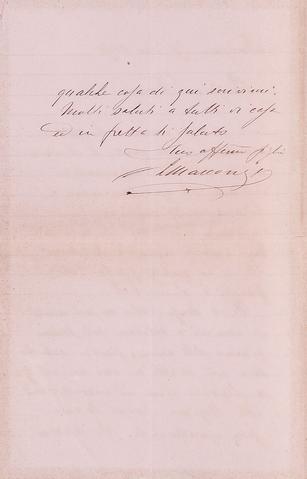 qualche cosa di qui scrivimi.
Molti saluti a tutti di casa
ed in fretta ti saluto
tuo affmo figlio